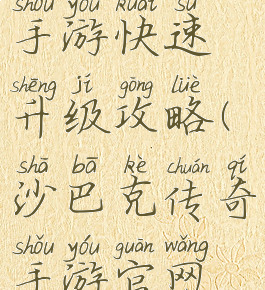 shǒu yóu kuài sù
手游快速
shēng jí gōng lüè
升级攻略(
shā bā kè chuán qí
沙巴克传奇
shǒu yóu guān wǎng
手游官网